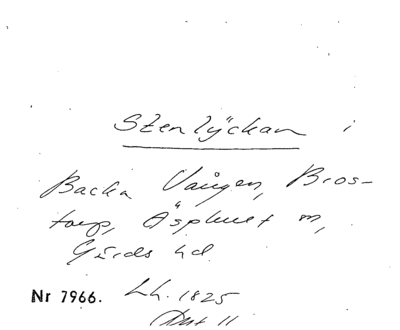 Stenlÿckan i
Backa Vången, Bros-
torp, Äspluet m,
Gärds hd
Nr 7966. Lh. 1825
Akt 11